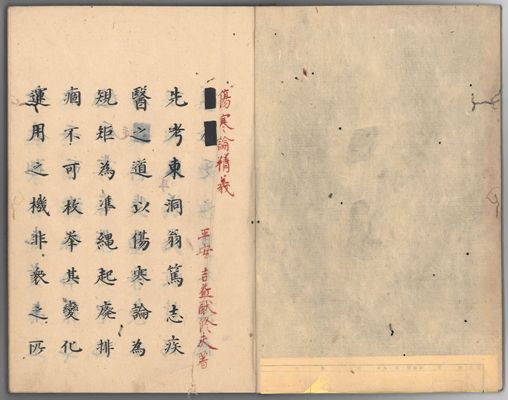 傷寒論精義
平安 吉益猷修夫著
先考東洞翁篤志疾
醫之道以傷寒論為
規矩為準縄起廢排
痼不可枚挙其變化
運用之機非衆之